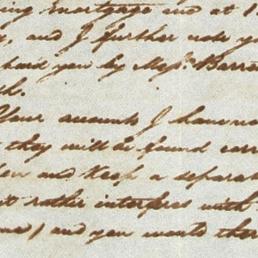 ing mortgage and at 1
and I further note y
you by Messrs. Barro
Your accounts I have no
they will be found corr
and keep a separat
rather interferes with
and you would ther